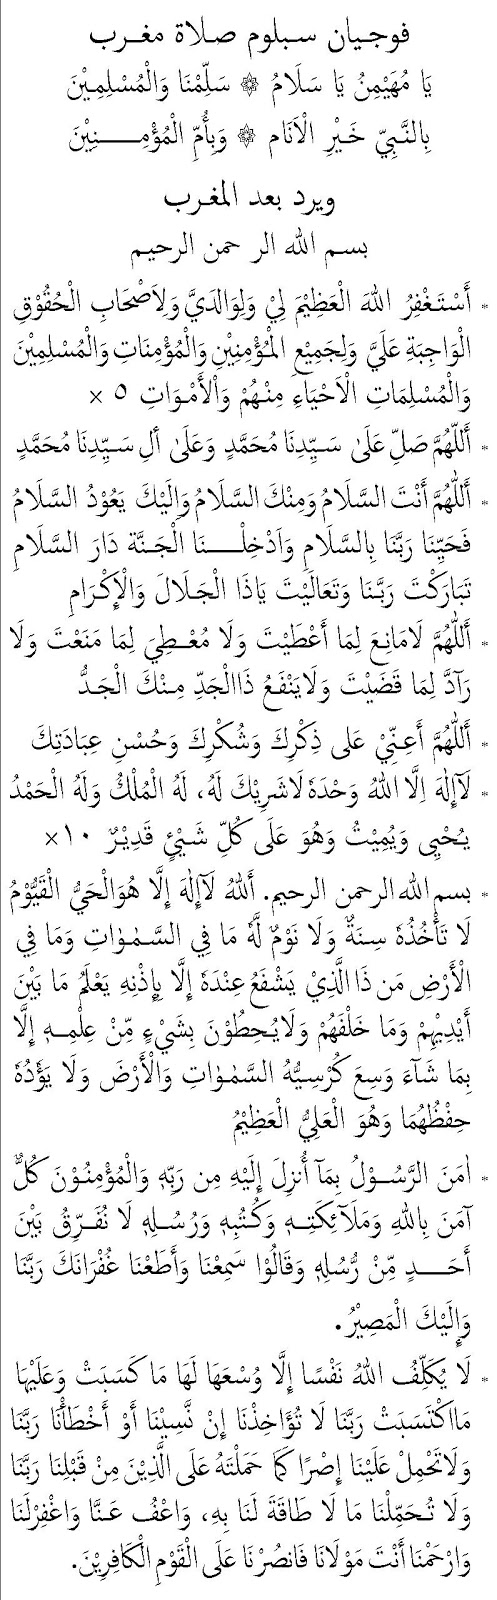 فوجيان سبلوم صلاة مغرب
يَا مُهَيْمِنُ يَا سَلَامُ ۞ سَلِّمْنَا وَالْمُسْلِمِيْنَ
بِالنَّبِيِّ خَيْرِ الْاَنَام ۞ وَبِأُمِّ الْمُؤْمِنِيْنَ
ويرد بعد المغرب
بسم الله الر حمن الرحيم
* أَسْتَغْفِرُ اللهَ الْعَظِيْمَ لِيْ وَلِوَالِدَيَّ وَلِاَصْحَابِ الْحُقُوْقِ
الْوَاجِبَةِ عَلَيَّ وَلِجَمِيْعِ الْمُؤْمِنِيْنَ وَالْمُؤْمِنَاتِ وَالْمُسْلِمِيْنَ
وَالْمُسْلِمَاتِ الْاَحْيَاءِ مِنْهُمْ وَاْلأَمْوَاتِ ٥ ×
* أَللّٰهُمَّ صَلِّ عَلَىٰ سَيِّدِنَا مُحَمَّدٍ وَعَلَىٰ أٰلِ سَيِّدِنَا مُحَمَّدٍ
* أَللّٰهُمَّ أَنْتَ السَّلَامُ وَمِنْكَ السَّلَامُ وَاِلَيْكَ يَعُوْدُ السَّلَامُ
فَحَيِّنَا رَبَّنَا بِالسَّلَامِ وَاَدْخِلْنَا الْجَنَّةَ دَارَ السَّلَامِ
تَبَارَكْتَ رَبَّنَا وَتَعَالَيْتَ يَاذَا الْجَلَالِ وَالْإِكْرَامِ
* أَللّٰهُمَّ لَامَانِعَ لِمَا أَعْطَيْتَ وَلَا مُعْطِيَ لِمَا مَنَعْتَ وَلَا
رَآدَّ لِمَا قَضَيْتَ وَلَايَنْفَعُ ذَاالْجَدِّ مِنْكَ الْجَدُّ
* أَللّٰهُمَّ أَعِنِّيْ عَلَى ذِكْرِكَ وَشُكْرِكَ وَحُسْنِ عِبَادَتِكَ
* لَآإِلٰهَ اِلَّا اللهُ وَحْدَهُ لَاشَرِيْكَ لَهُ، لَهُ الْمُلْكُ وَلَهُ الْحَمْدُ
يُحْيِى وَيُمِيْتُ وَهُوَ عَلَى كُلِّ شَيْئٍ قَدِيْرٌ ١٠×
* بسم الله الرحمن الرحيم. أَللهُ لَآإِلٰهَ إِلَّا هُوَالْحَيُّ الْقَيُّوْمُ
لَا تَأْخُذُهٗ سِنَةٌ وَلَا نَوْمٌ لَّهٗ مَا فِي السَّمٰوٰاتِ وَمَا فِي
الْأَرْضِ مَن ذَا الَّذِيْ يَشْفَعُ عِنْدَهٗ إِلَّا بِإِذْنِهِ يَعْلَمُ مَا بَيْنَ
أَيْدِيْهِمْ وَمَا خَلْفَهُمْ وَلَايُحِطُوْنَ بِشَيْءٍ مِّنْ عِلْمِهِ إِلَّا
بِمَا شَآءَ وَسِعَ كُرْسِيُّهُ السَّمٰوٰاتِ وَالْأَرْضَ وَلَا يَؤُدُهٗ
حِفْظُهُمَا وَهُوَ الْعَلِيُّ الْعَظِيْمُ
* اٰمَنَ الرَّسُوْلُ بِمَآ أُنزِلَ إِلَيْهِ مِن رَبِّهٖ وَالْمُؤْمِنُوْنَ كُلٌّ
آمَنَ بِاللهِ وَمَلَآئِكَتِهٖ وَكُتُبِهٖ وَرُسُلِهٖ لَا نُفَرِّقُ بَيْنَ
أَحَدٍ مِّنْ رُّسُلِهٖ وَقَالُوْا سَمِعْنَا وَأَطَعْنَا غُفْرَانَكَ رَبَّنَا
وَإِلَيْكَ الْمَصِيْرُ.
* لَا يُكَلِّفُ اللهُ نَفْسًا إِلَّا وُسْعَهَا لَهَا مَا كَسَبَتْ وَعَلَيْهَا
مَااكْتَسَبَتْ رَبَّنَا لَا تُؤَاخِذْنَا إِنْ نَّسِيْنَا أَوْ أَخْطَأْنَا رَبَّنَا
وَلَاتَحْمِلْ عَلَيْنَا إِصْرًا كَمَا حَمَلْتَهُ عَلَى الَّذِيْنَ مِنْ قَبْلِنَا رَبَّنَا
وَلَا تُحَمِّلْنَا مَا لَا طَاقَةَ لَنَا بِهِ، وَاعْفُ عَنَّا وَاغْفِرْلَنَا
وَارْحَمْنَا أَنْتَ مَوْلَانَا فَانصُرْنَا عَلَى الْقَوْمِ الْكَافِرِيْنَ.